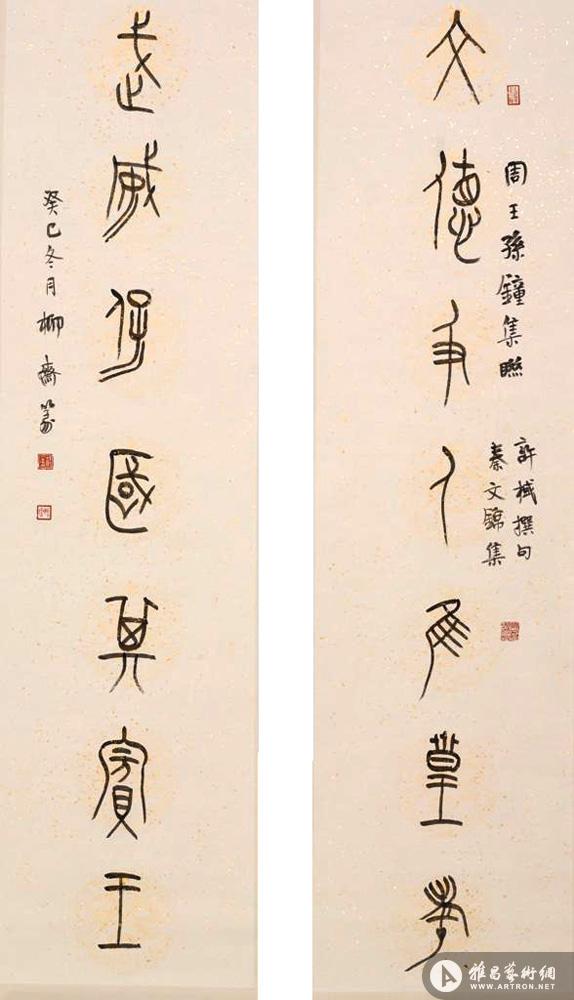 文德及人隹皇考
周王孫鐘集聯
許棫撰句
秦文錦集
武威俘國其賓王
癸巳冬月柳齋篆
雅昌藝術網
WWW.ARTRON.NET